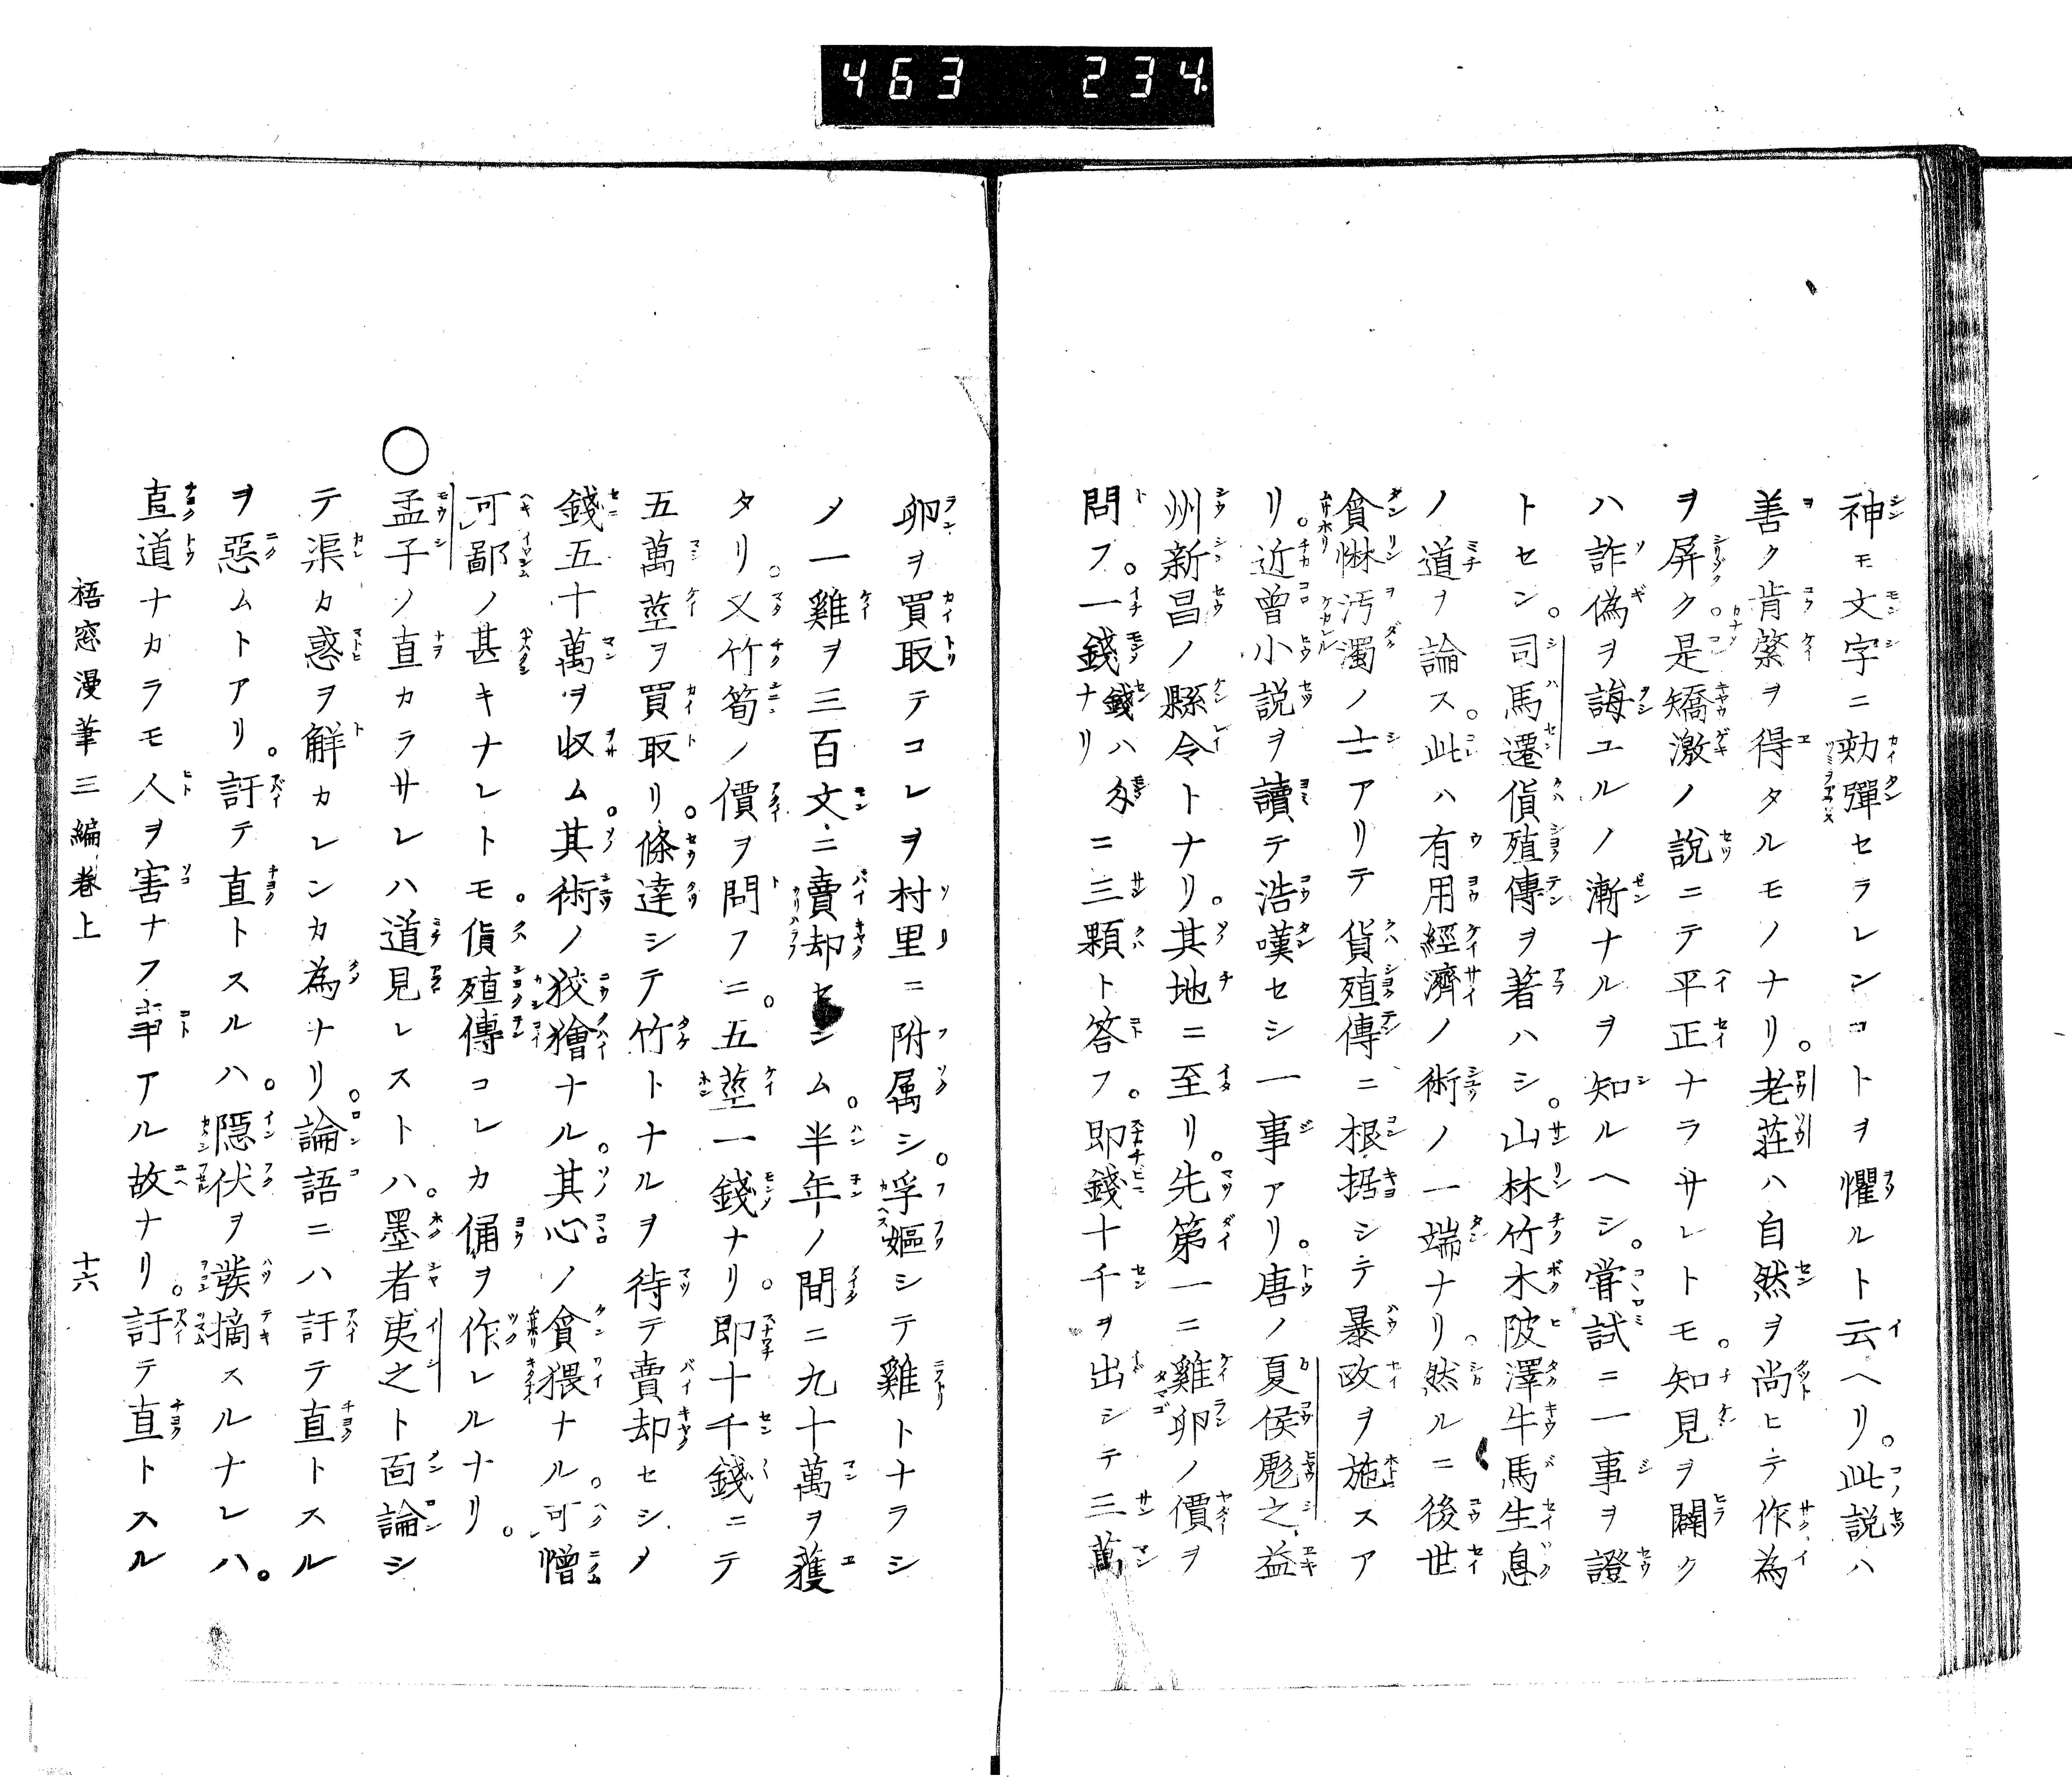 463 234.
神モ文字ニ劾彈セラレンコトヲ懼ルト云ヘリ。此説ハ
善ク肯綮ヲ得タルモノナリ。老莊ハ自然ヲ尚ヒテ作為
ヲ屏ク。是矯激ノ說ニテ平正ナラサレトモ。知見ヲ闢ク
ハ詐偽ヲ誨ユルノ漸ナルヲ知ルヘシ。嘗試ニ一事ヲ證
トセン。司馬遷貨殖傳ヲ著ハシ。山林竹木陂澤牛馬生息
ノ道ヲ論ス。此ハ有用經濟ノ術ノ一端ナリ。然ルニ後世
貪惏汚濁ノ士アリテ貨殖傳ニ根据シテ暴政ヲ施スア
リ。近曾小説ヲ讀テ浩嘆セシ一事アリ。唐ノ夏侯彪之益
州新昌ノ縣令トナリ。其地ニ至リ。先第一ニ雞卵ノ價ヲ
問フ。一錢ナリ錢ハ文ニ三顆ト答フ。即錢十千ヲ出シテ三萬
卵ヲ買取テコレヲ村里ニ附属シ。孚嫗シテ雞トナラシ
ノ一雞ヲ三百文ニ賣却セシム。半年ノ間ニ九十萬ヲ獲
タリ。又竹筍ノ價ヲ問フニ。五莖一錢ナリ。即十千錢ニテ
五萬莖ヲ買取リ。條達シテ竹トナルヲ待テ賣却セシメ
錢五十萬ヲ収ム。其術ノ狡獪ナル。其心ノ貪猥ナル。可憎
可鄙ノ甚キナレトモ。貨殖傳コレカ俑ヲ作レルナリ。
○孟子ノ直カラサレハ道見レストハ。墨者夷之ト面論シ
テ渠カ惑ヲ解カレンカ為ナリ。論語ニハ訐テ直トスル
ヲ惡ムトアリ。訐テ直トスルハ。隠伏ヲ發摘スルナレハ。
直道ナカラモ人ヲ害ナフ事アル故ナリ。訐テ直トスル
梧窓漫筆三編卷上 十六